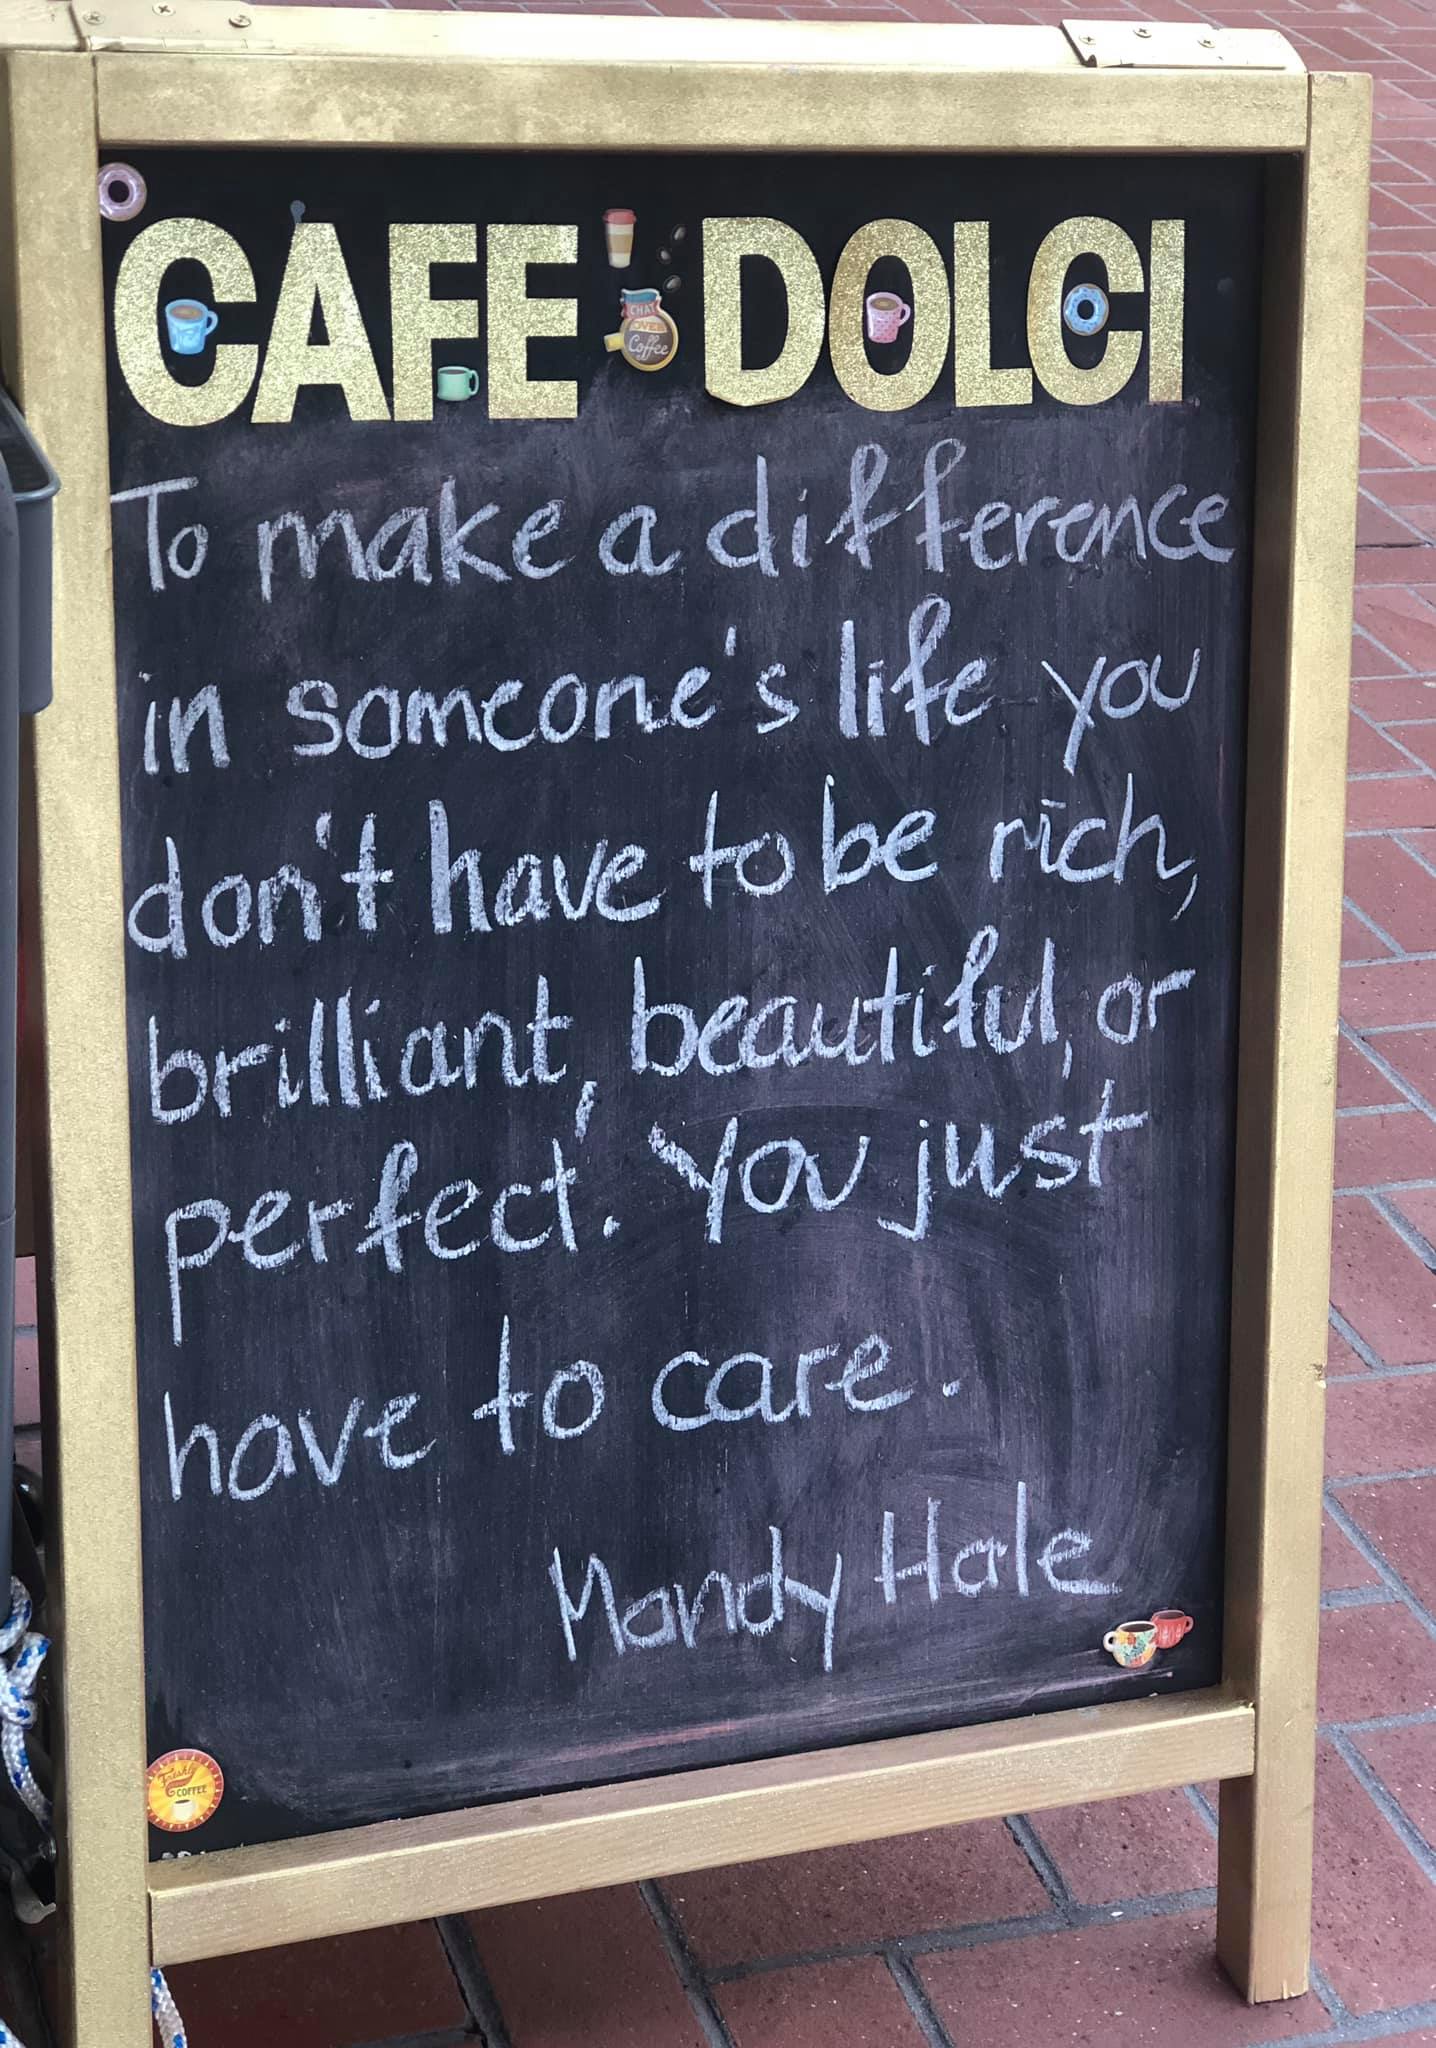 CAFE DOLCI
CHAT
OVER
Coffee
To make a difference
in someone's life you
don't have to be rich,
brilliant, beautiful, or
perfect. You just
have to care.
Mandy Hale
Freshly
COFFEE